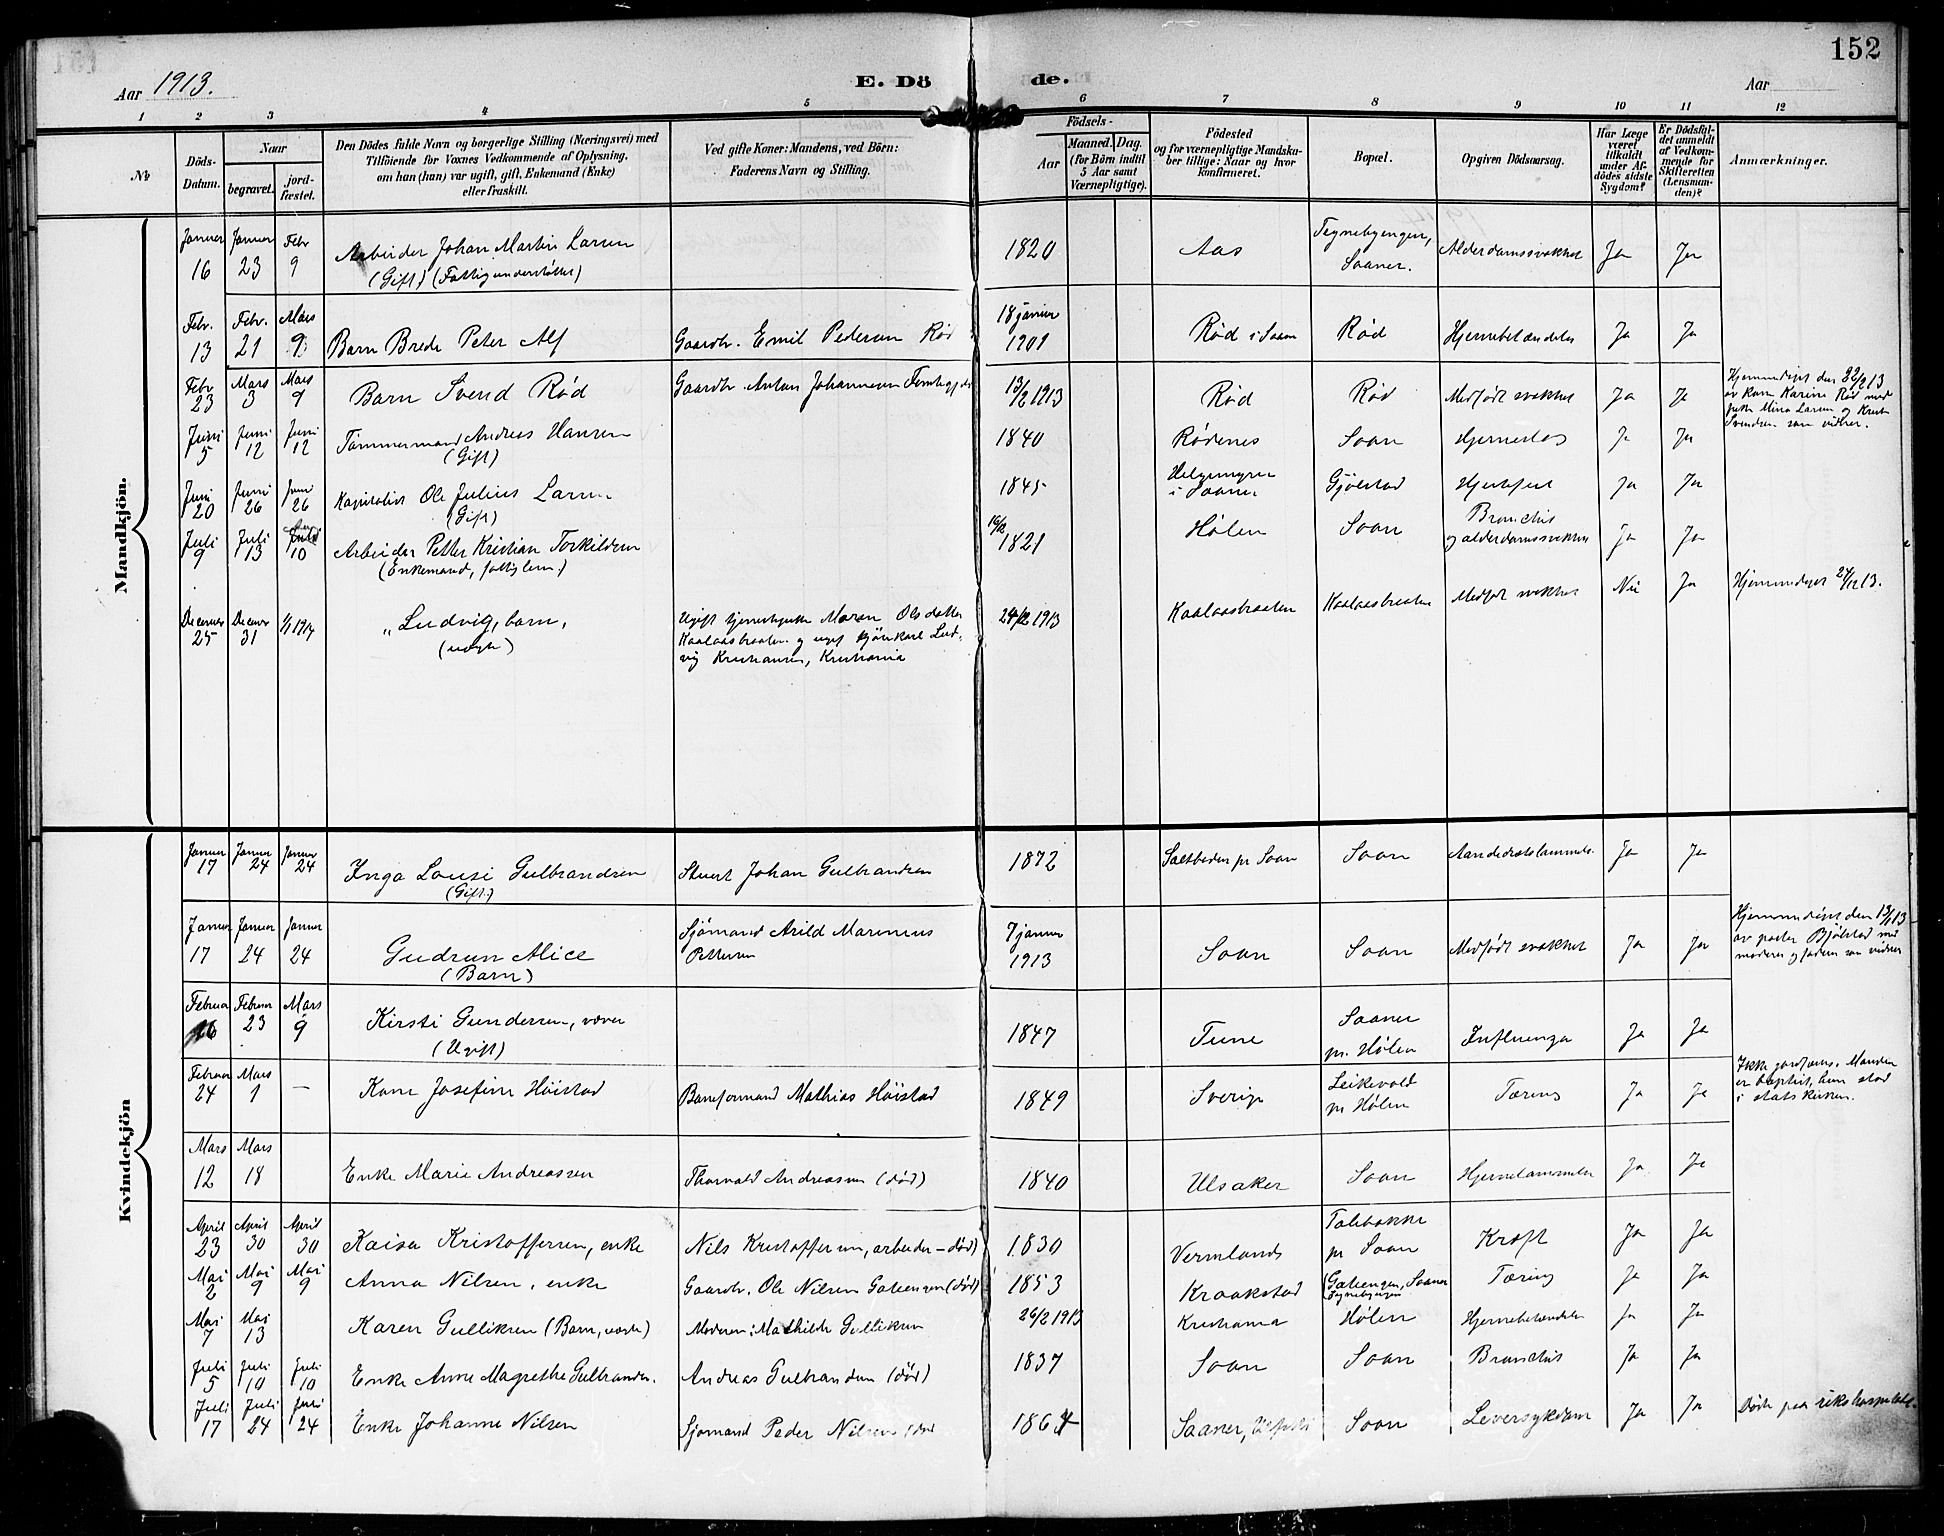 152
Aar 1913.
E. Dö de.
Aar
1 2 3 4 5 6 7 8 9 10 11 12
No
Döds-Datum.
Naar
begravet.
jord-fæstet.
Den Dödes fulde Navn og borgerlige Stilling (Næringsvei) med
Tilföiende for Voxnes Vedkommende af Oplysning,
om han (hun) var ugift, gift, Enkemand (Enke)
eller fraskilt.
Ved gifte Koner: Mandens, ved Börn:
Faderens Navn og Stilling.
Födsels-
Aar
Maaned. Dag.
(for Börn indtil
5 Aar samt
Værnepligtige).
Födested
og for værnepligtige Mandska-
ber tillige: Naar og hvor
konfirmeret.
Bopæl.
Opgiven Dödsaarsag.
Har Læge
været
tilkaldt
under Af-
dödes sidste
Sygdom?
Er Dödsfal-
det anmeldt
af Vedkom-
mende for
Skifteretten
(Lensman-
den)?
Anmærkninger.
Mandkjön.
Januar 16 Januar 23 Febr 9 Arbeider Johan Martin Larsen (Gift) (Fattigunderstøttet) 1820 Aas Tegnebyengen, Saaner. Alderdomssvakhet Ja Ja
Febr. 13 Febr. 21 Mars 9 Barn Brede Peter Alf Gaardbr. Emil Pedersen Rød 18 januar 1901 Rød i Saaner Rød Hjernebetændelse Ja Ja
Febr 23 Mars 3 Mars 9 Barn Svend Rød Gaardbr. Anton Johannesen 13/2 1913 Rød Rød Medfødt svakhet Ja Ja Hjemmedøpt den 22/2 13 av Kone Karine Rød med Mina Larsen og Svendsen som vidner.
Juni 5 Juni 12 Juni 12 Tømmermand Andreas Hansen (Gift) 1840 Rødenes Soon Hjerneslag Ja Ja
Juni 20 Juni 26 Juni 26 Kapitalist Ole Julius Larsen (Gift) 1845 i Saaner Gjølstad Hjertefeil Ja Ja
Juli 9 Juli 13 Juli 10 Arbeider Petter Kristian Torkildsen (Enkemand, fattiglem) 16/2 1821 Hølen Soon Bronchit og alderdomssvakhet Ja Ja
December 25 December 31 1/1 1914 "Ludvig, barn, (uægte) Ugift tjenestepike Maren Olsdatter Kaalaasbraaten og ugift Ludvig Kristiansen, Kristiania 24/12 1913 Kaalaasbraaten Kaalaasbraaten Medfødt svakhet Nei Ja Hjemmedøpt 24/12 13.
Kvindekjön
Januar 17 Januar 24 Januar 24 Inga Lousi Gulbrandsen (Gift) Stuert Johan Gulbrandsen 1872 Saltboden pr Soon Soon Aandedrætslammelse Ja Ja
Januar 17 Januar 24 Januar 24 Gudrun Alice (Barn) Sjømand Arild Marenius Pettersen 7 januar 1913 Soon Soon Medfødt svakhet Ja Ja Hjemmedøpt den 13/1 13 av pastor Bjølstad med moderen og faderen som vidner
Februar 16 Februar 23 Mars 9 Kirsti Gundersen, væver (Ugift) 1847 Tune Saaner pr. Hølen Influenza Ja Ja
Februar 24 Mars 1 — Kone Josefine Höistad Baneformand Mathias Höistad 1849 Sverige Leikevold pr Hølen Tæring Ja Ja Ikke jordfæstet. Manden er baptist, hun stod i statskirken.
Mars 12 Mars 18 Enke Marie Andreassen Thorvald Andreassen (død) 1840 Ulsaker Soon Hjernelammelse Ja Ja
April 23 April 30 April 30 Kaisa Kristoffersen, enke Nils Kristoffersen, arbeider - død) 1830 Vermland Labbakke pr Soon Kræft Ja Ja
Mai 2 Mai 9 Mai 9 Anna Nilsen, enke Gaardbr. Ole Nilsen Galeengen (død) 1853 Kraakstad (Galeengen, Saaner Tegnebyengen Tæring Ja Ja
Mai 7 Mai 13 Karen Gulliksen (Barn, uægte) Moderen: Mathilde Gulliksen 26/2 1913 Kristiania Hølen Hjernebetændelse Ja Ja
Juli 5 Juli 10 Juli 10 Enke Anne Magrethe Gulbrandsen Andreas Gulbrandsen (død) 1837 Soon Soon Bronchit Ja Ja
Juli 17 Juli 24 Juli 24 Enke Johanne Nilsen Sjømand Peder Nilsen (død 1864 Saaner, Soon Leversykdom Ja Ja Døde paa rikshospitalet.